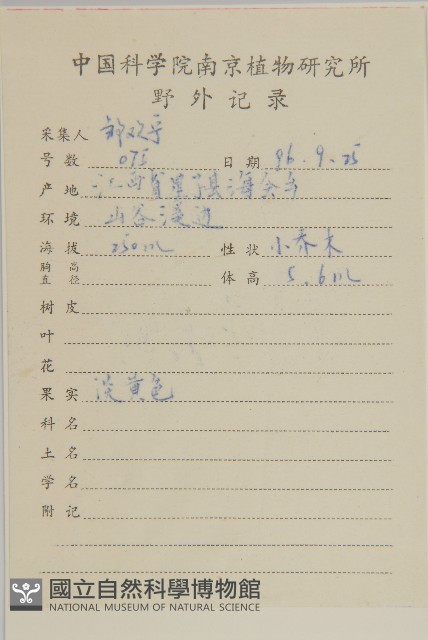 中国科学院南京植物研究所
野外记录
采集人
号数 075 日期 96.9.25
产地 江西省星子县海会寺
环境 山谷溪边
海拔 250m 性状 小乔木
胸高直径 体高 5.6m
树皮
叶
花
果实 淡黄色
科名
土名
学名
附记
國立自然科學博物館
NATIONAL MUSEUM OF NATURAL SCIENCE